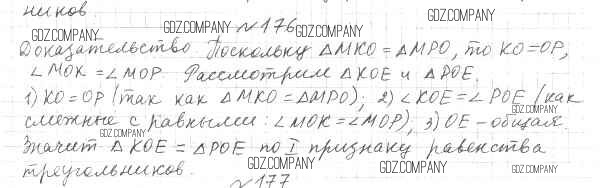 ников
GDZ.COMPANY
№176
GDZ.COMPANY GDZ.COMPANY GDZ.COMPANY
Доказательство. Поскольку △MKO = △MPO, то KO=OP,
∠MOK = ∠MOP. Рассмотрим △KOE и △POE.
1) KO=OP (так как △MKO=△MPO), 2) ∠KOE=∠POE (как
GDZ.COMPANY
смежные с равными: ∠MOK=∠MOP), 3) OE - общая.
GDZ.COMPANY
Значит △KOE = △POE по I признаку равенства
треугольников.
GDZ.COMPANY GDZ.COMPANY GDZ.COMPANY
№177